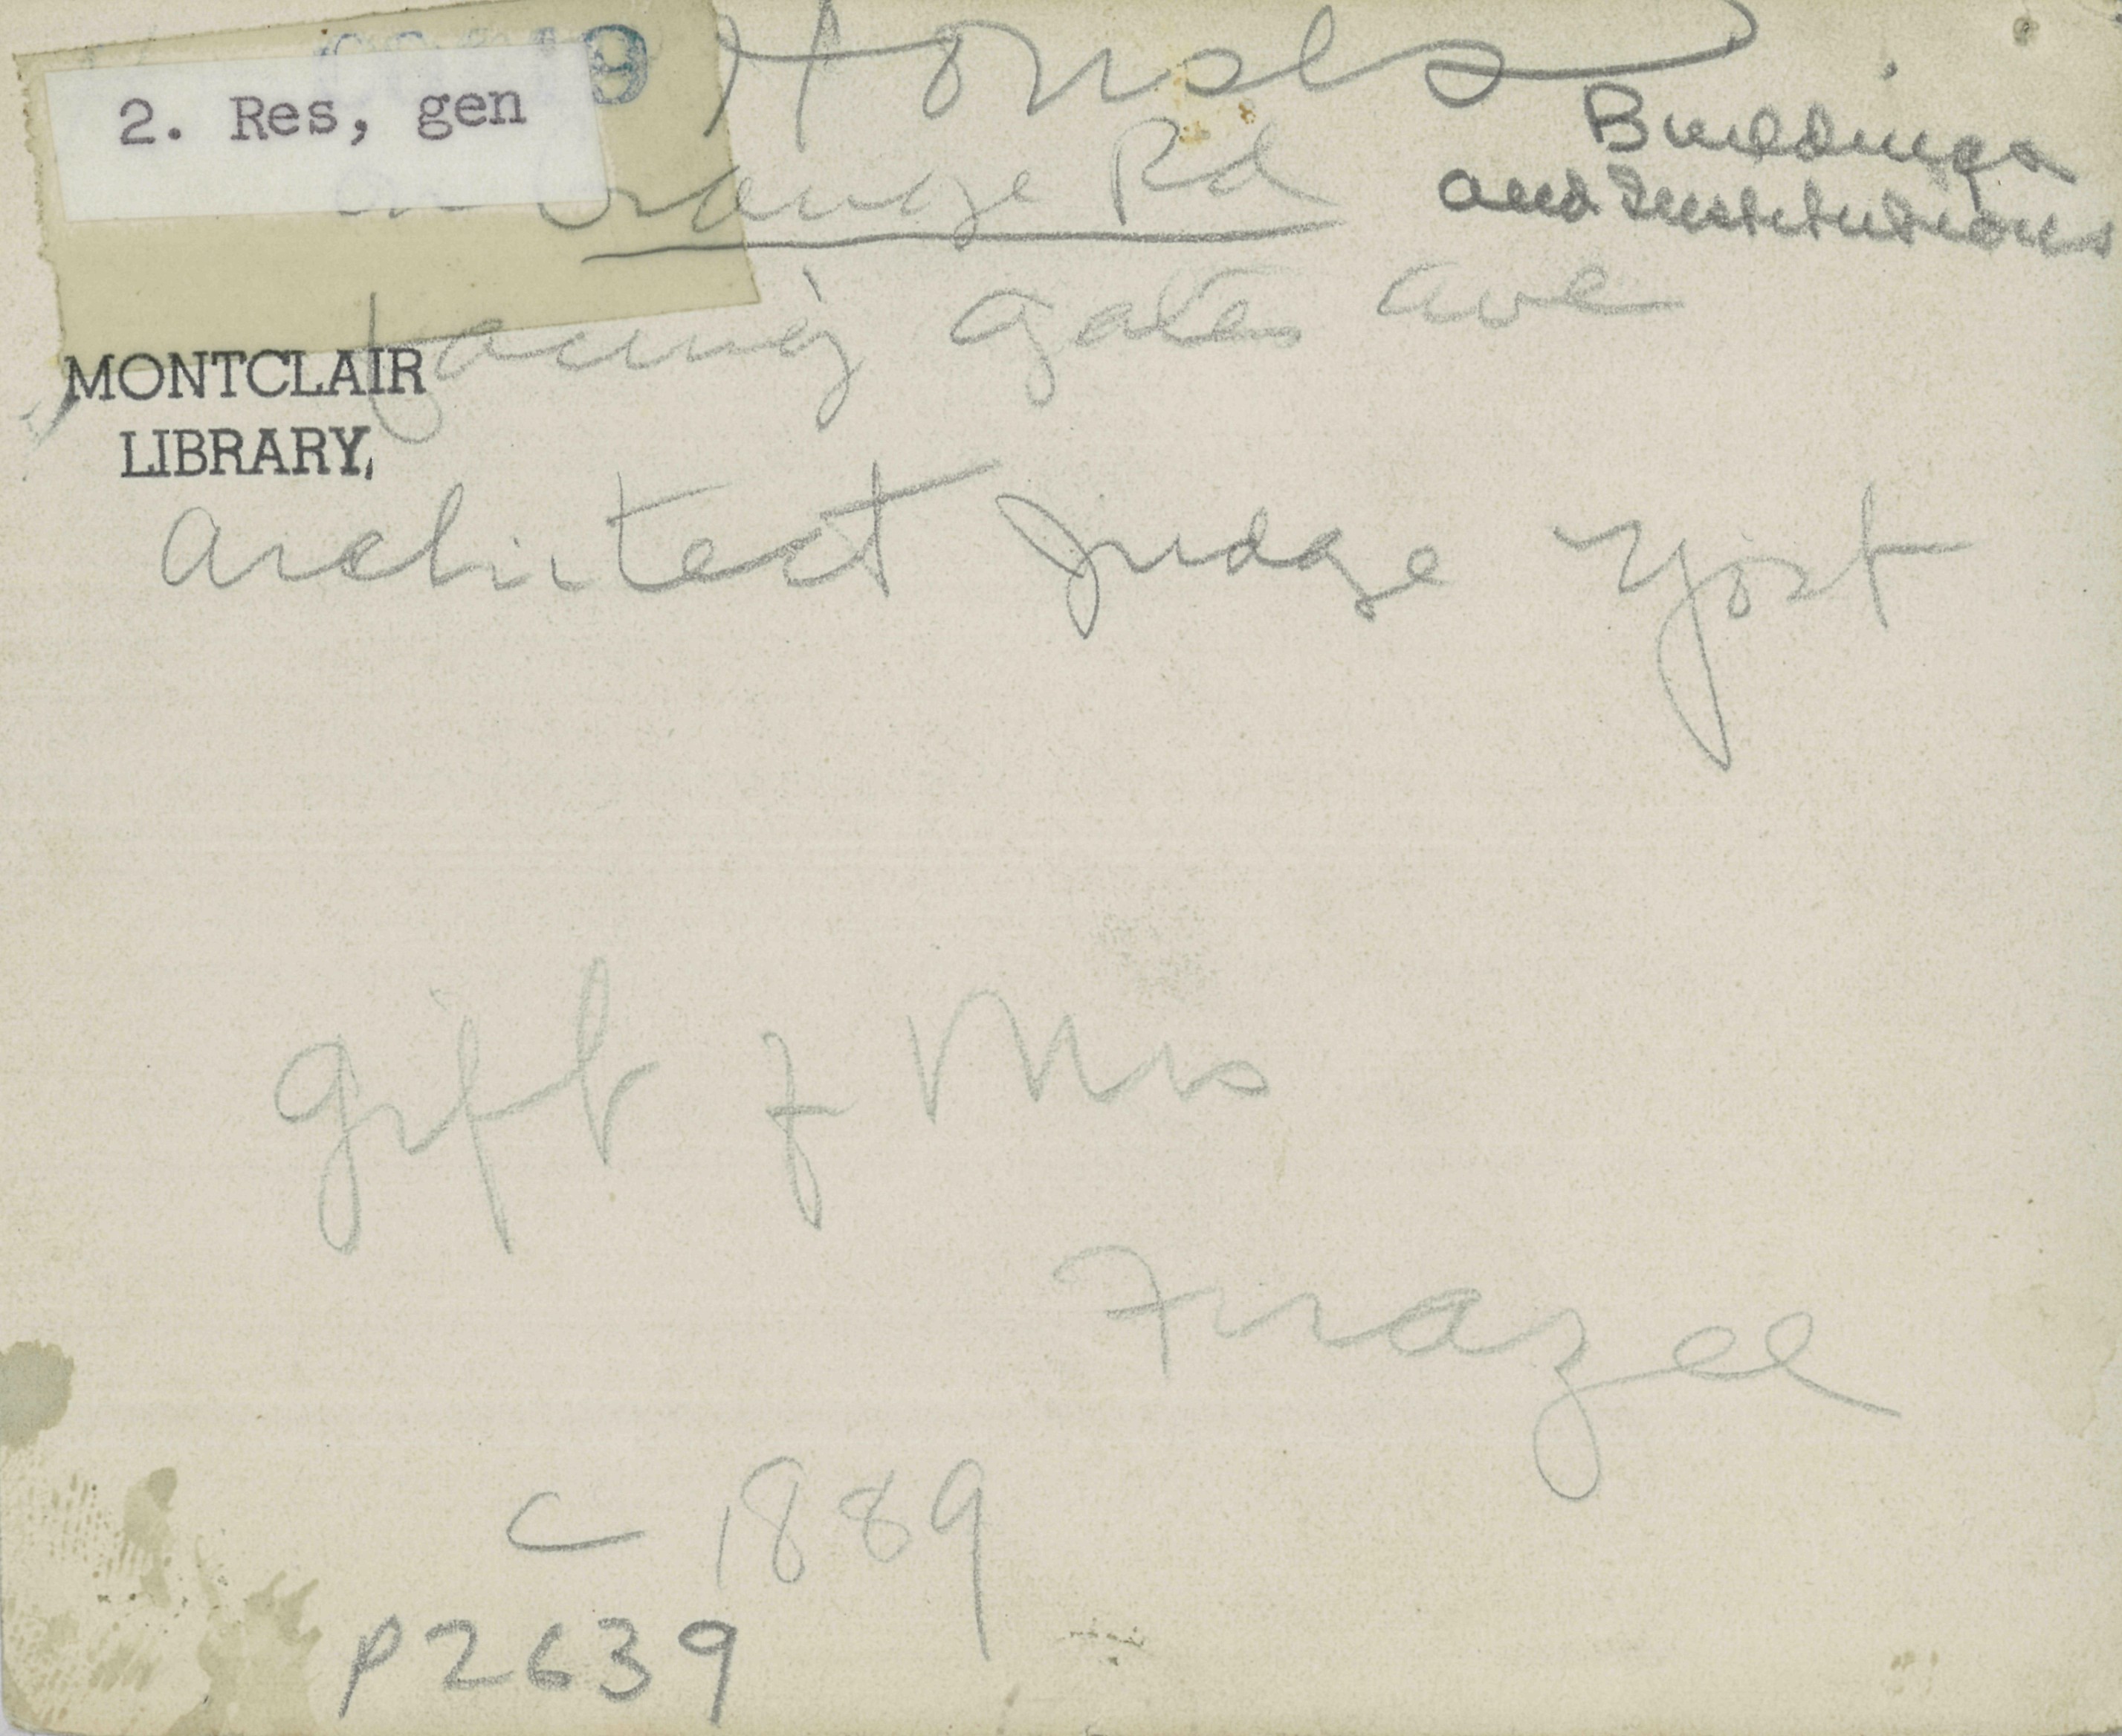 Houses
2. Res, gen
Buildings
and Institutions
on Orange Rd
facing Gates Ave
MONTCLAIR
LIBRARY,
Architect Judge Yost
Gift of Mrs
Frazee
c 1889
P2639